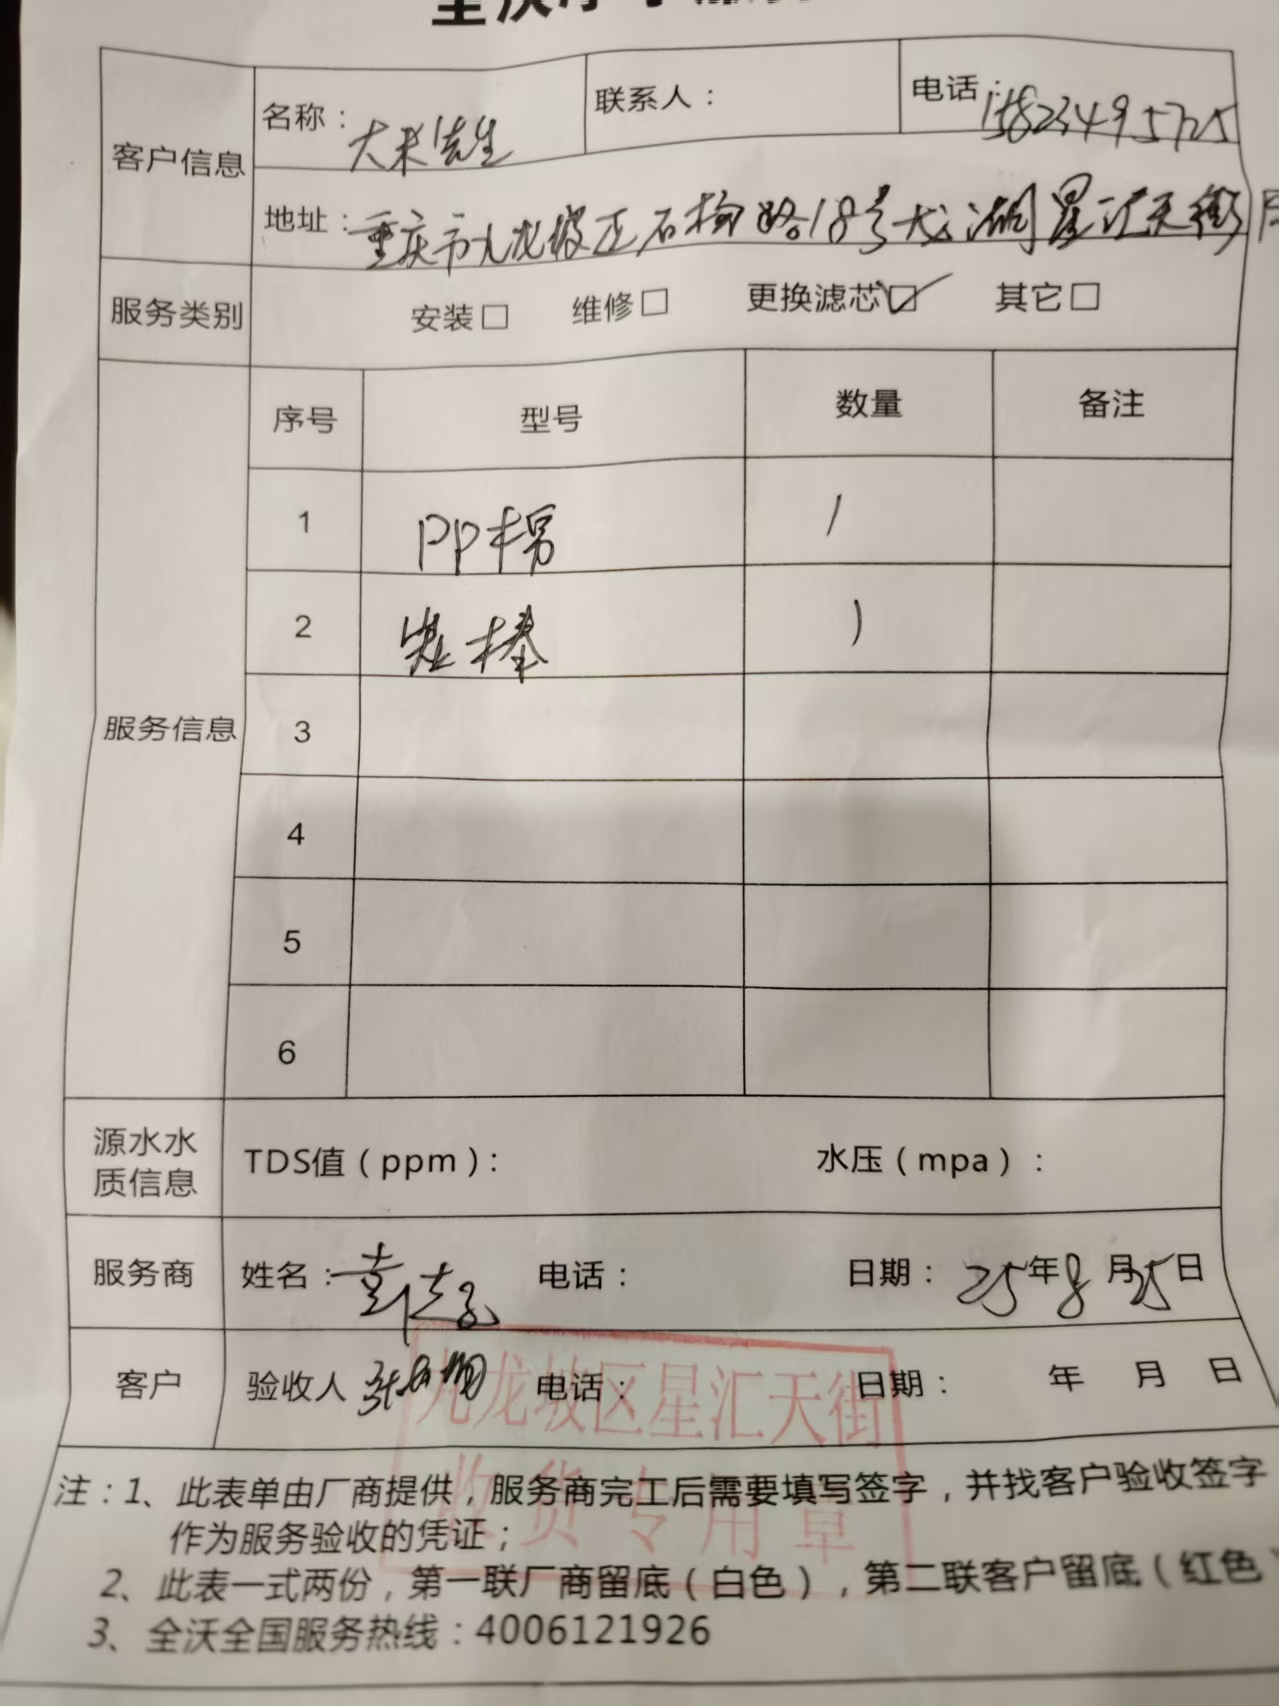 名称：大米先生 联系人： 电话：15823495725
客户信息
地址：重庆市九龙坡区石杨路18号龙湖星汇天街
服务类别 安装□ 维修□ 更换滤芯☑ 其它□
序号 型号 数量 备注
1 PP棉 1
2 炭棒 1
服务信息 3
4
5
6
源水水
质信息
TDS值（ppm）： 水压（mpa）：
服务商 姓名： 电话： 日期：25年8月25日
客户 验收人 电话： 日期： 年 月 日
九龙坡区星汇天街
收货专用章
注：1、此表单由厂商提供，服务商完工后需要填写签字，并找客户验收签字
作为服务验收的凭证；
2、此表一式两份，第一联厂商留底（白色），第二联客户留底（红色
3、全沃全国服务热线：4006121926